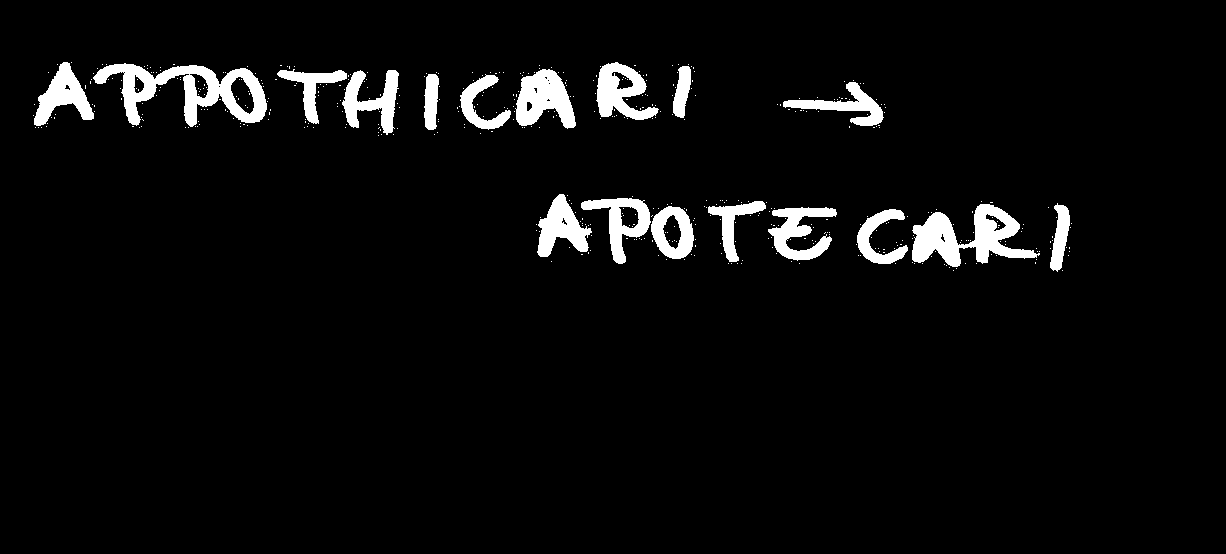 APPOTHICARI →
APOTECARI